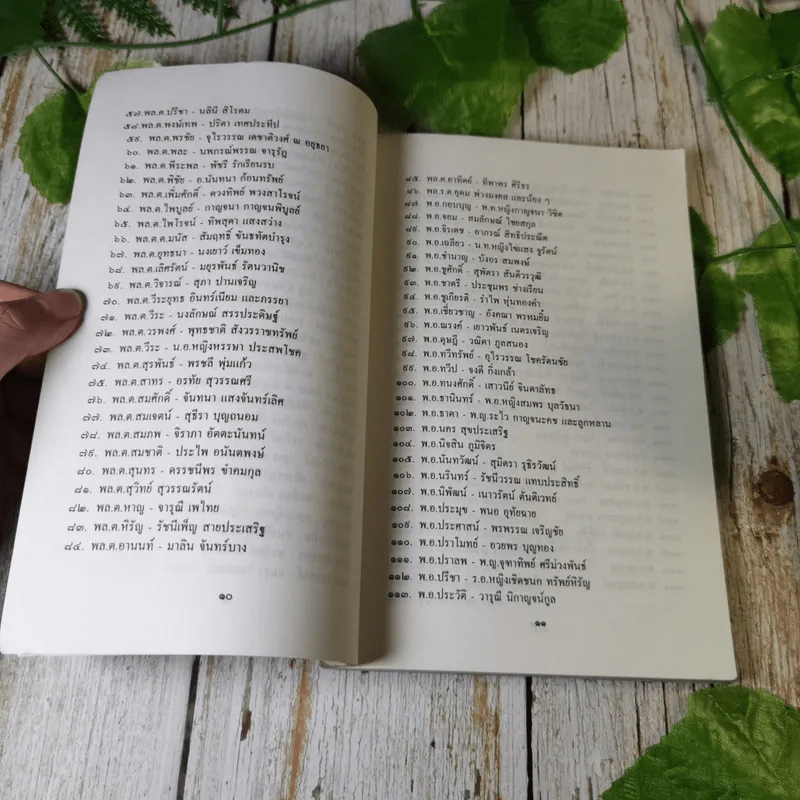 ๕๗.พล.ต.ปรีชา - นลินี สิโรดม
๕๘.พล.ต.พงษ์เทพ - ปริศา เทศประทีป
๕๙. พล.ต.พรชัย - จุไรวรรณ เดชาติวงศ์ ณ อยุธยา
๖๐. พล.ต.พละ - นพภรณ์พรรณ จารุรัฎ
๖๑. พล.ต.พีระพล - พัชรี รักเรียนรบ
๖๒. พล.ต.พิชัย - อ.นันทนา ก้อนทรัพย์
๖๓. พล.ต.เพิ่มศักดิ์ - ดวงทิพย์ พวงสาโรจน์
๖๔. พล.ต.ไพบูลย์ - กาญจนา กาญจนพิบูลย์
๖๕. พล.ต.ไพโรจน์ - ทิพสุดา แสงสว่าง
๖๖. พล.ต.ต.มนัส - สัมฤทธิ์ ขันธทัตบำรุง
๖๗. พล.ต.ยุทธนา - นงเยาว์ เข็มทอง
๖๘. พล.ต.เลิศรัตน์ - มยุรพันธ์ รัตนวานิช
๖๙. พล.ต.วิจารณ์ - สุภา ปานเจริญ
๗๐. พล.ต.วีระยุทธ อินทร์เนียม และภรรยา
๗๑. พล.ต.วีระ - นงลักษณ์ สรรประดิษฐ์
๗๒. พล.ต.วรพงศ์ - พุทธชาติ สังวรราชทรัพย์
๗๓. พล.ต.วีระ - น.อ.หญิงหรรษา ประสพโชค
๗๔. พล.ต.สุรพันธ์ - พรชลี พุ่มแก้ว
๗๕. พล.ต.สาทร - อรทัย สุวรรณศรี
๗๖. พล.ต.สมศักดิ์ - จันทนา แสงจันทร์เลิศ
๗๗. พล.ต.สมเจตน์ - สุธีรา บุญถนอม
๗๘. พล.ต.สมภพ - จิราภา อัตตะนันทน์
๗๙. พล.ต.สมชาติ - ประไพ อนันตพงษ์
๘๐. พล.ต.สุนทร - ดรรชนีพร ขำคมกุล
๘๑. พล.ต.สุวิทย์ สุวรรณรัตน์
๘๒. พล.ต.หาญ - จารุณี เพไทย
๘๓. พล.ต.หิรัญ - รัชนีเพ็ญ สายประเสริฐ
๘๔. พล.ต.อานนท์ - มาลิน จันทร์บาง
๑๐
๘๕. พล.ต.อาทิตย์ - ทิพาพร ศิริธร
๘๖. พล.ร.ต.อุดม พ่วงมงคล และน้อง ๆ
๘๗. พ.อ.กอบบุญ - พ.ท.หญิงกาญจนา วิชิต
๘๘. พ.อ.จอม - สมลักษณ์ ไชยสกุล
๘๙. พ.อ.จิรเดช - อาภรณ์ สิทธิประณีต
๙๐. พ.อ.เฉลียว - น.ท.หญิงไขแสง จูรัตน์
๙๑. พ.อ.ชำนาญ - บังอร สมพงษ์
๙๒. พ.อ.ชูศักดิ์ - สุพัตรา สันติวรวุฒิ
๙๓. พ.อ.ชาตรี - ประชุมพร ช่างเรียน
๙๔. พ.อ.ชูเกียรติ - รำไพ หุ่นทองคำ
๙๕. พ.อ.เชี่ยวชาญ - อังคณา พรหมยิ้ม
๙๖. พ.อ.ณรงค์ - เยาวพันธ์ เนตรเจริญ
๙๗. พ.อ.ดุษฎี - วณิดา ภูลสนอง
๙๘. พ.อ.ทวีทรัพย์ - อุไรวรรณ โชครัตนชัย
๙๙. พ.อ.ทวีป - จงดี กิ่งเกล้า
๑๐๐. พ.อ.ทนงศักดิ์ - เสาวนีย์ จินดาลัทธ
๑๐๑. พ.อ.ธานินทร์ - พ.อ.หญิงสมพร บุลวัธนา
๑๐๒. พ.อ.ธาดา - พ.ญ.ระไว กาญจนะคช และลูกหลาน
๑๐๓. พ.อ.นคร สุขประเสริฐ
๑๐๔. พ.อ.นิจสิน ภูมิจิตร
๑๐๕. พ.อ.นันทวัฒน์ - สุมิตรา รุธิรวัฒน์
๑๐๖. พ.อ.นรินทร์ - รัชนีวรรณ แทบประสิทธิ์
๑๐๗. พ.อ.นิพัฒน์ - เนาวรัตน์ ตันติเวทย์
๑๐๘. พ.อ.ประมุข - พนอ อุทัยฉาย
๑๐๙. พ.อ.ประศาสน์ - พรพรรณ เจริญชัย
๑๑๐. พ.อ.ปราโมทย์ - อวยพร บุญทอง
๑๑๑. พ.อ.ปราลพ - พ.ญ.จุฑาทิพย์ ศรีม่วงพันธ์
๑๑๒. พ.อ.ปรีชา - ร.อ.หญิงเชิดชนก ทรัพย์หิรัญ
๑๑๓. พ.อ.ประวัติ - วารุณี นิกาญจน์กูล
๑๑